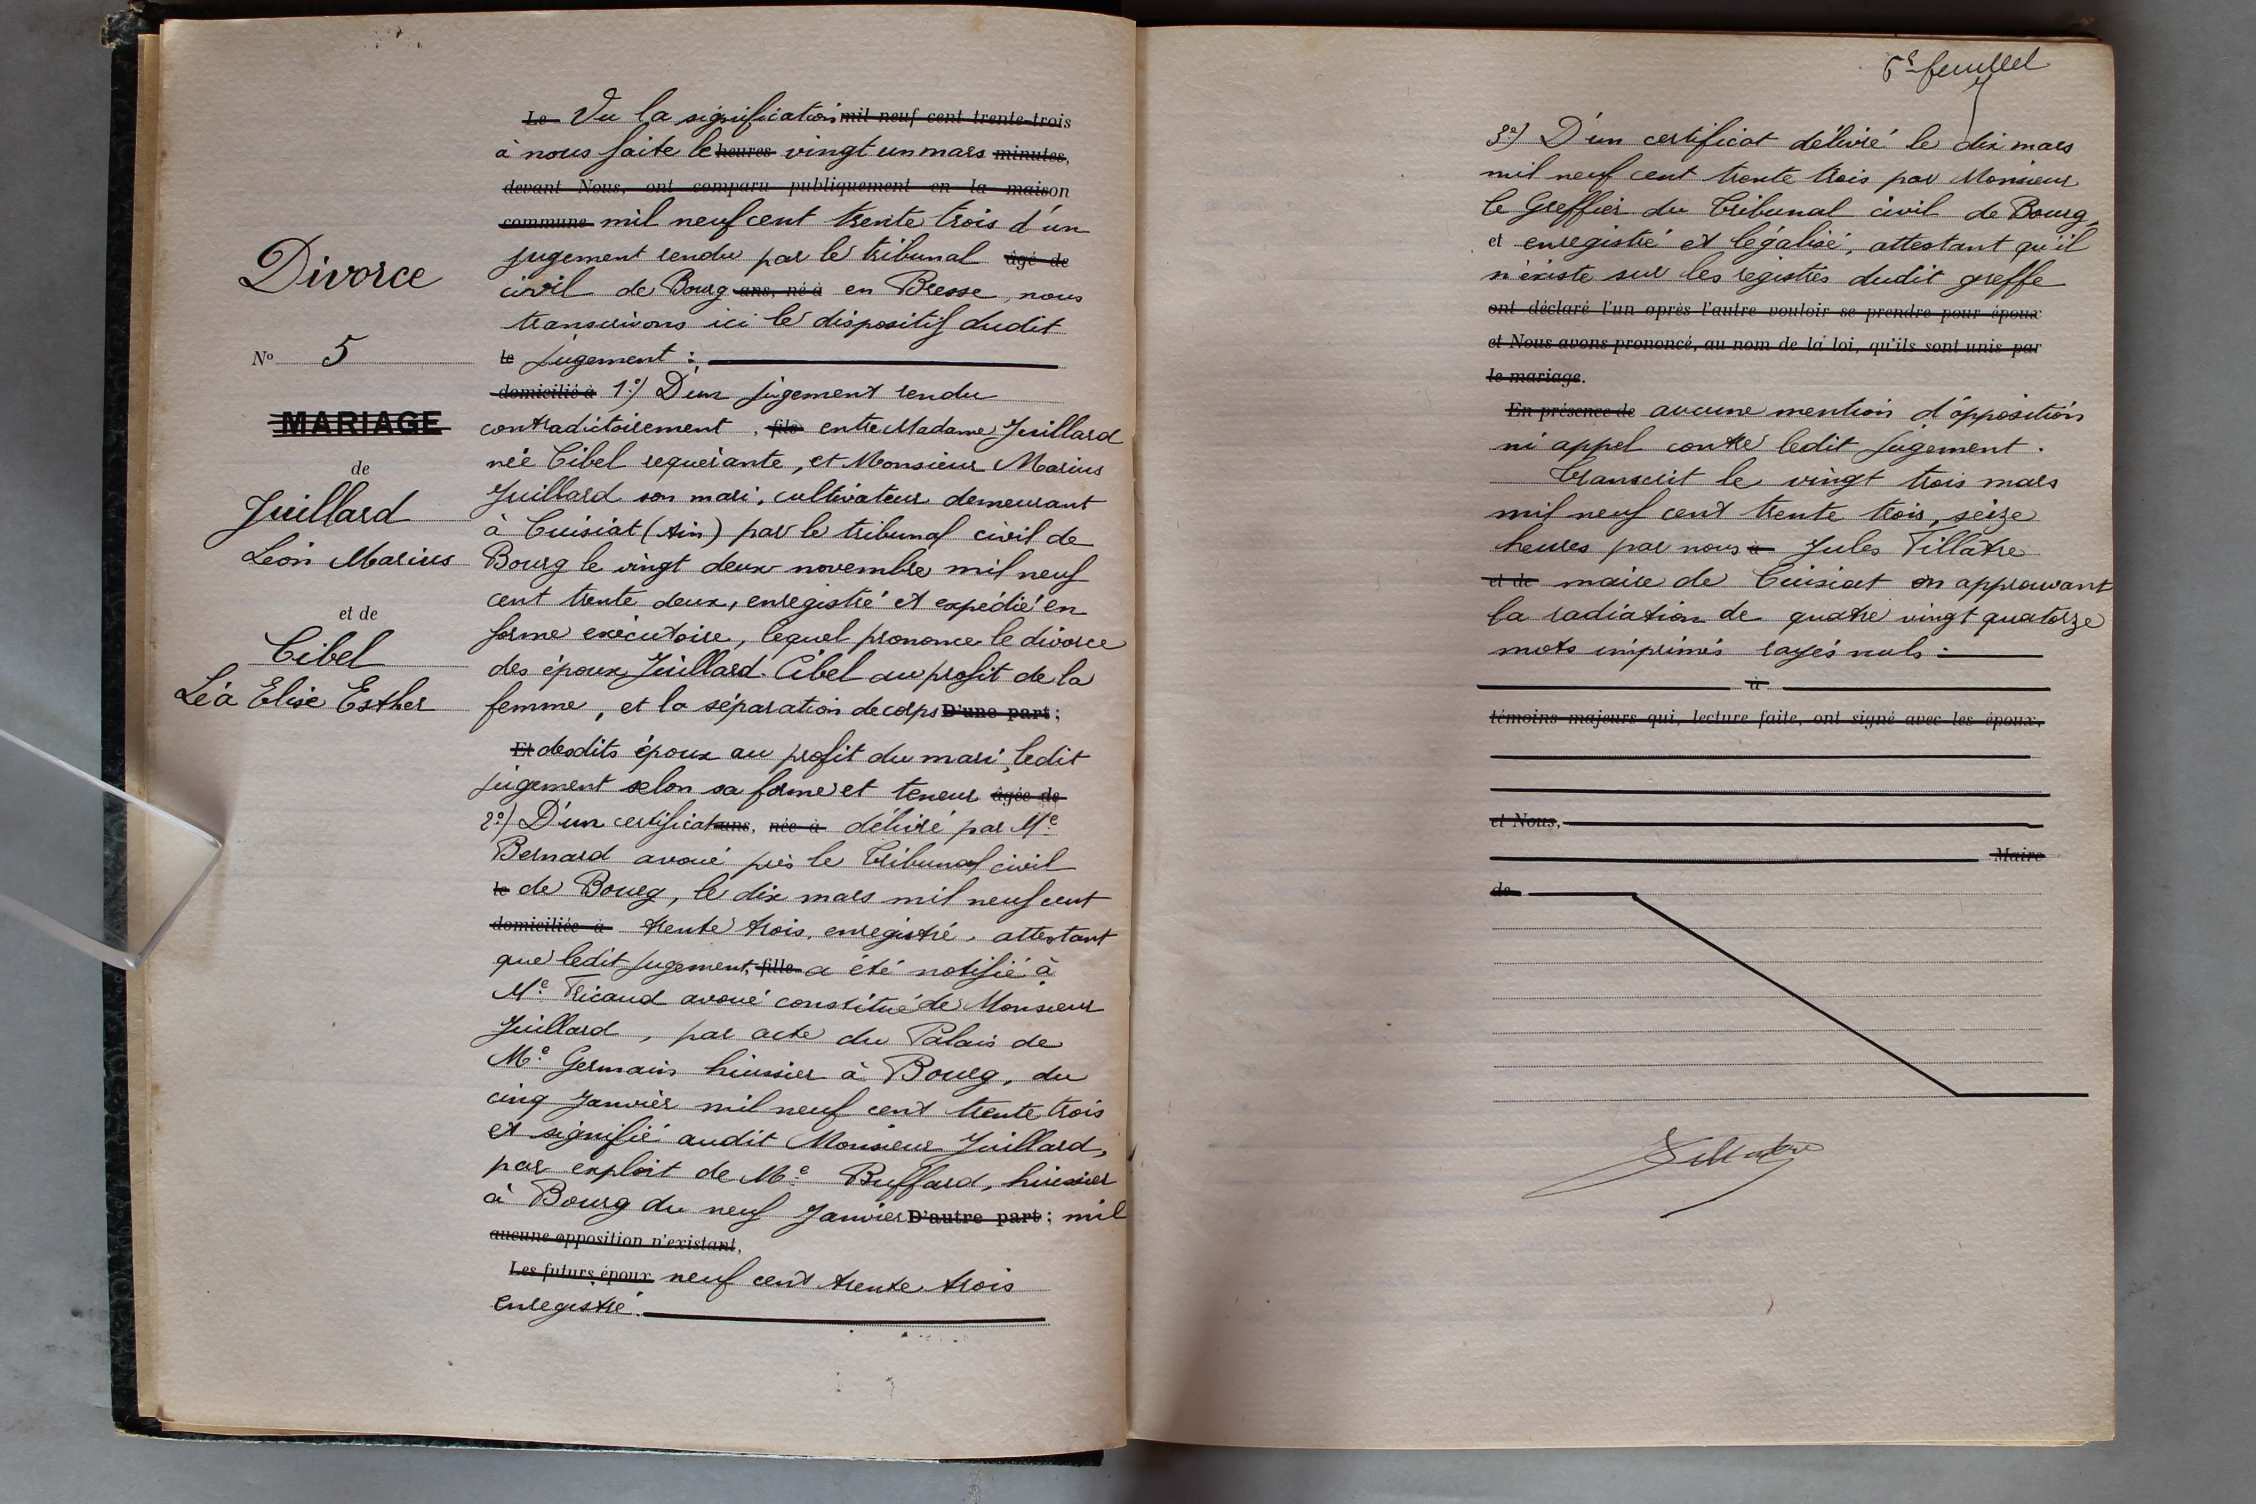 Divorce
N° 5
MARIAGE
de
Juillard
Léon Marius
et de
Cibel
Léa Elise Esther
Le Vu la signification mil neuf cent trente-trois
à nous faite le heures vingt un mars minutes,
devant Nous, ont comparu publiquement en la maison
commune mil neuf cent trente trois d'un
jugement rendu par le tribunal âgé de
civil de Bourg ans, né à en Bresse, nous
transcrivons ici le dispositif dudit
le jugement :
domicilié à 1°) D'un jugement rendu
contradictoirement, fils entre Madame Juillard
née Cibel requérante, et Monsieur Marius
Juillard son mari, cultivateur demeurant
à Cuisiat (Ain) par le tribunal civil de
Bourg le vingt deux novembre mil neuf
cent trente deux, enregistré et expédié en
forme exécutoire, lequel prononce le divorce
des époux Juillard-Cibel au profit de la
femme, et la séparation de corps D'une part ;
Et desdits époux au profit du mari, ledit
jugement selon sa forme et teneur âgée de
2°) D'un certificat ans, née à délivré par Me
Bernard avoué près le Tribunal civil
le de Bourg, le dix mars mil neuf cent
domiciliée à trente trois, enregistré, attestant
que ledit jugement, fille a été notifié à
Me Ricaud avoué constitué de Monsieur
Juillard, par acte du Palais de
Me Germain huissier à Bourg, du
cinq Janvier mil neuf cent trente trois
et signifié audit Monsieur Juillard,
par exploit de Me Buffard, huissier
à Bourg du neuf Janvier D'autre part ; mil
aucune opposition n'existant,
Les futurs époux neuf cent trente trois
enregistré.
5e feuillet
3e) D'un certificat délivré le dix mars
mil neuf cent trente trois par Monsieur
le Greffier du Tribunal civil de Bourg,
et enregistré et légalisé, attestant qu'il
n'existe sur les registres dudit greffe
ont déclaré l'un après l'autre vouloir se prendre pour époux
et Nous avons prononcé, au nom de la loi, qu'ils sont unis par
le mariage.
En présence de aucune mention d'opposition
ni appel contre ledit jugement.
Transcrit le vingt trois mars
mil neuf cent trente trois, seize
heures par nous à Jules Tillatre
et de maire de Cuisiat en approuvant
la radiation de quatre vingt quatorze
mots imprimés rayés nuls :
à
témoins majeurs qui, lecture faite, ont signé avec les époux,
et Nous,
Maire
de
Tillatre